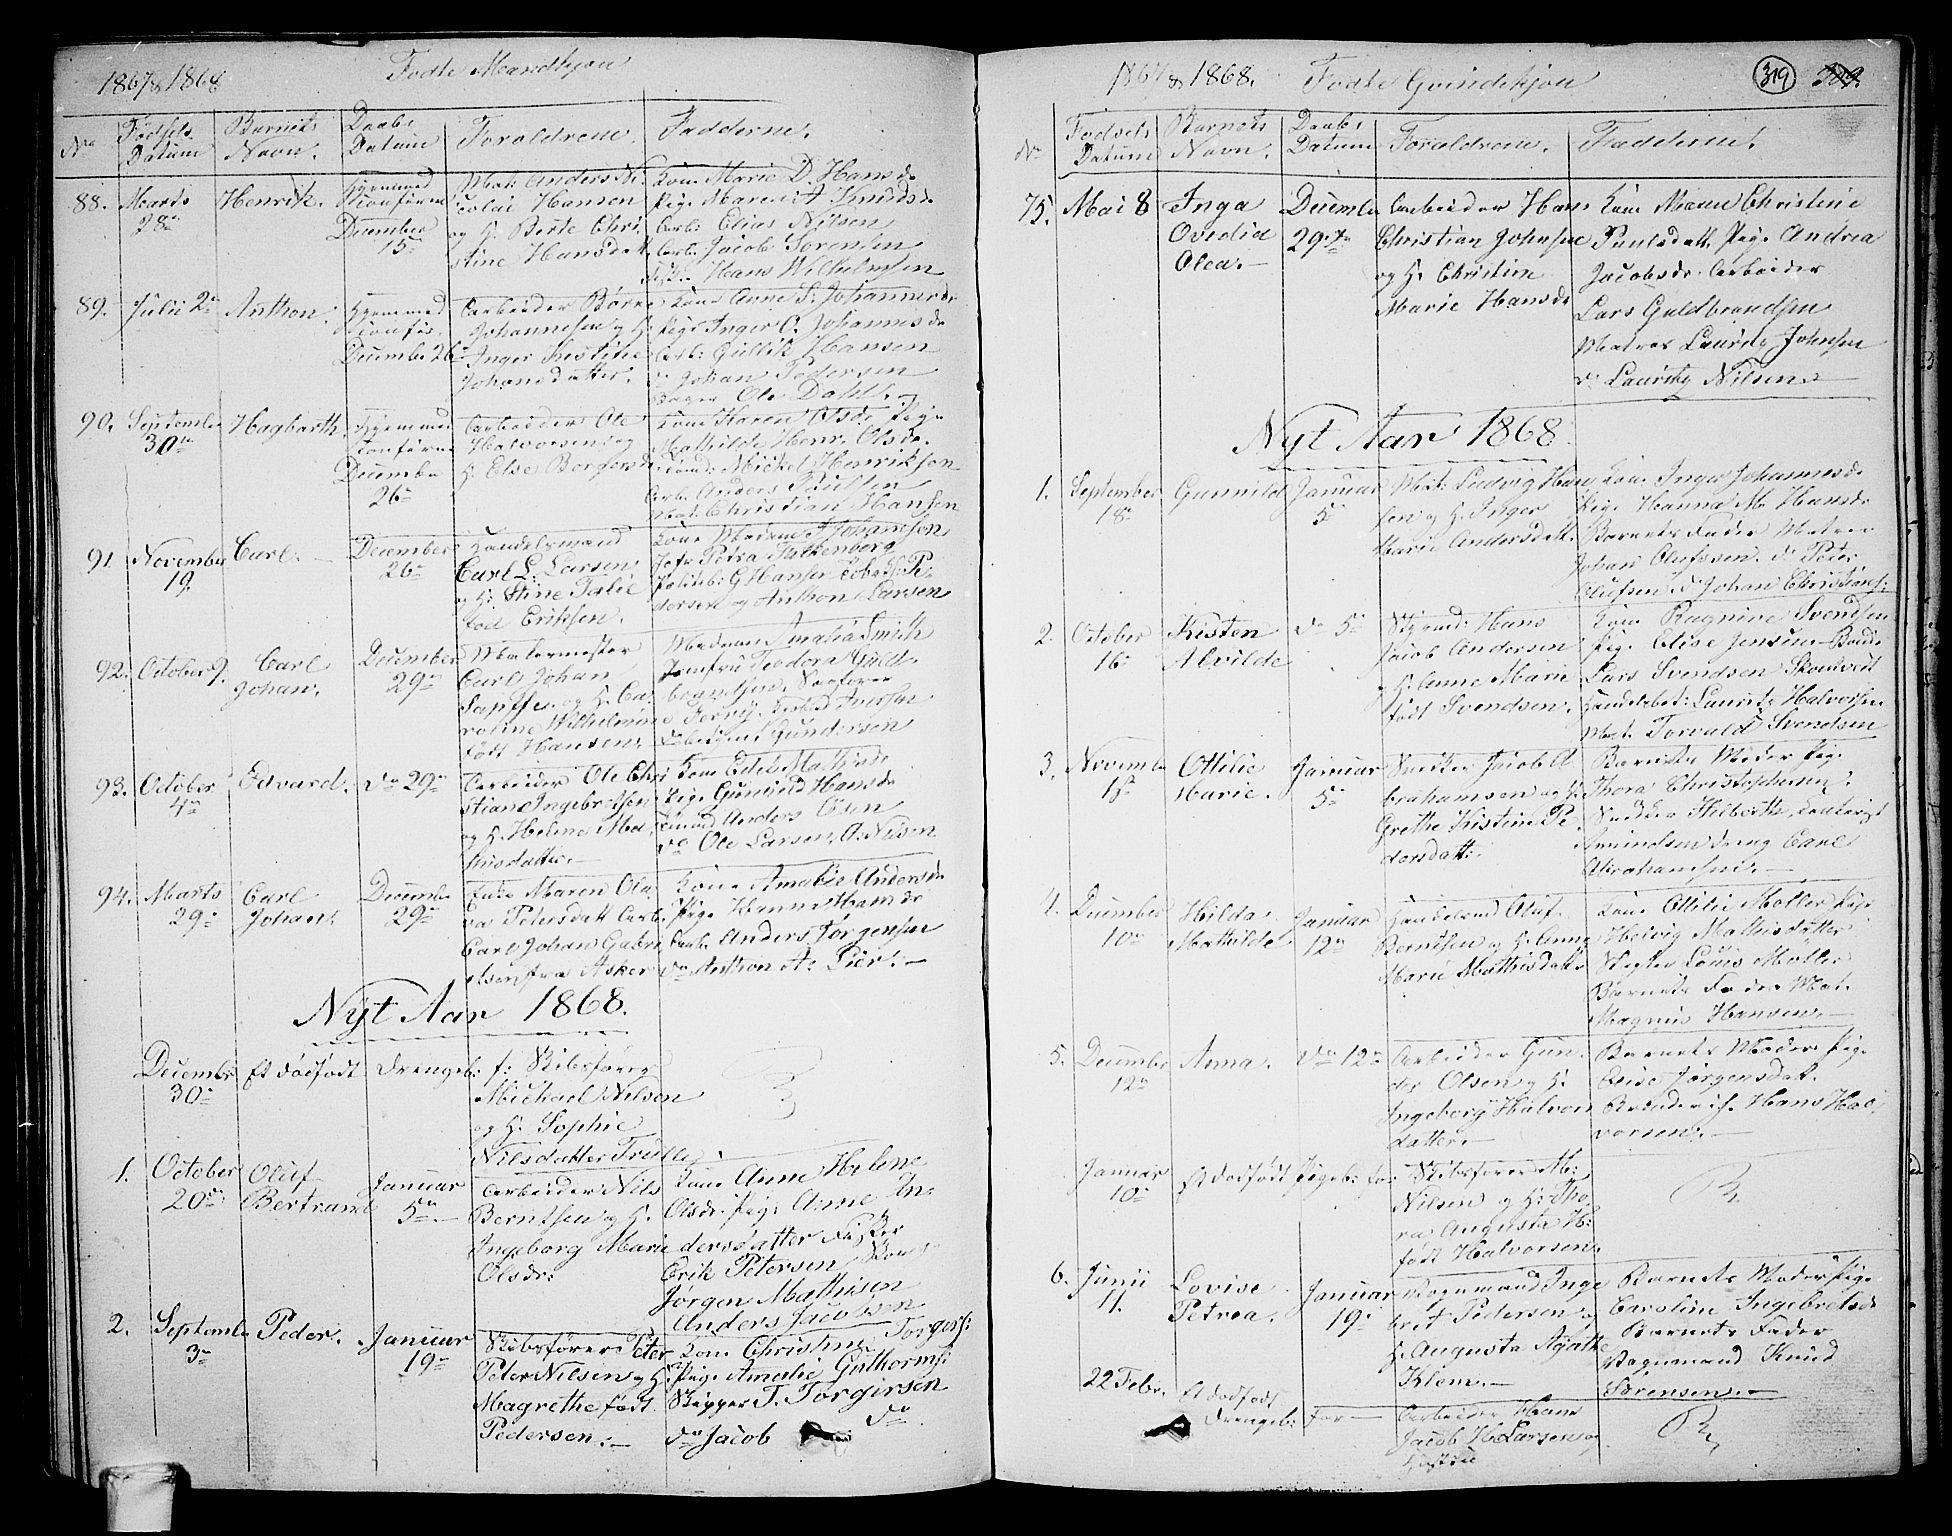 1867 & 1868
Fødte Mandkjøn
No
Fødsels
Datum
Barnets
Navn.
Daabs
Datum
Forældrene.
Fadderne.
88.
Marts
28de
Henrik.
Hjemmed
Konfirme
December
15de
Mat: Anders Ni-
colai Hansen
og H. Berte Chri-
stine Hansdat.
Kone Marie D. Hansd.
Pige Maren A. Knudsd.
Arb: Elias Nilsen
Arb: Jacob Sørensen
Hans Wilhelmsen
89.
Julii 2de
Anthon.
Hjemmed
Konfir.
December 26
Arbeider Børre
Johannesen og H.
Inger Kristine
Johansdatter.
Kone Anne S. Johannesdr
Pige Inger O. Johannesdr
Arb: Gullik Hansen
do Johan Pedersen
Bager Ole Dahl.
90.
September
30te
Hagbarth.
Hjemmed
Konfirme
December
26de
Arbeider Ole
Halvorsen og
H. Else Børresd.
Kone Karen Olsdr Pige
Mathilde Henr. Olsdr.
Mickel Henriksen
Arb. Anders
Mat. Christian Hansen
91
November
19.
Carl.
December
26de
Handelsmand
Carl L. Larsen
og H. Stine Talie
fød Eriksen.
Kone Madame Johansen
Jofr Petra Falkenberg
Politib: G. Hansen Tobias Pe-
dersen og Anthon Larsen
92.
October 9.
Carl
Johan.
December
29de
Malermester
Carl Johan
Sapffe og H. Ca-
roline Wilhelmine
født Hansen.
Madam Amalia Smith
Jomfru Teodora Guld-
Iversen
Gundersen
93.
October
4de
Edvard.
do 29de
Arbeider Ole Chri
stian Ingebretsen
og H. Helene Ma-
thisdatter.
Kone Edel Mathisd
Pige Gunnild Hansdr
Anders Olsen
do Ole Larsen, O. Nilsen
94.
Marts
29de
Carl
Johan.
December
29de
Enke Maren Ola-
va Petersdatt Arb.
Carl Johan Gabri
elsen fra Asker
Kone Amalie Andersdr
Pige Hanna Hansdr
Arb: Anders Jørgensen
do Anthon A. Lier.
Nyt Aar 1868.
December
30te
Et dødfødt Drengeb: f: Skibsfører
Michael Nilsen
og H. Sophie
Nilsdatter Trulle
1.
October
20de
Oluf
Bertrand
Januar
5te
Arbeider Nils
Berntsen og H.
Ingeborg Marie
Olsdr:
Kone Anne Helene
Olsdr. Pige Anne An-
dersdatter Fisker
Erik Petersen
Jørgen Mathisen
Anders Jacobsen
2.
September
3de
Peder.
Januar
19de
Skibsfører Peter
Peter Nilsen og H.
Magrethe født
Pedersen.
Kone Christine Torgers:
Pige Amalie Guthorms:
Skipper T. Torgersen
do Jacob do
1867 & 1868.
Fødte Qvindekjøn
319
No
Fødsels
Datum
Barnets
Navn.
Daabs
Datum
Forældrene.
Fadderne.
75.
Mai 8
Inga
Ovedia
Olea.
December
29de
Arbeider Hans
Christian Johnsen
og H. Christine
Marie Hansdr
Kone Maren Christine
Paulsdatt, Pige Andrea
Jacobsdr. Arbeider
Lars Guldbrandsen
Matros Lauritz Johnsen
do Lauritz Nilsen.
Nyt Aar 1868.
1.
September
18de
Gunnild
Januar
5te
Mat: Ludvig Han
sen og H. Inger
Marie Andersdatt.
Kone Inger Johannesdr
Pige Hanna M. Hansdr
Barnets Fader Matros
Johan Olufssen. do Peter
Olufsen do Johan Christians:
2.
October
16de
Kisten
Alvilde
do 5te
Styrmd: Hans
Jacob Andersen
og H. Anne Marie
født Svendsen.
Kone Ragnine Svendsen
Pige Elise Jensen Bonde
Lars Svendsen Skontveit
Handelsbet: Lauritz Halvorsen
Mat. Torvald Svendsen
3.
November
15de
Ottilie
Marie.
Januar
5te
Snedker Jacob A
brahamsen og H.
Grethe Kistine Pe-
dersdatt:
Barnets Moder Pige
Thora Christophersen.
Snedker Hilbreth,
Amundsen Dreng Carl
Abrahamsen.
4.
December
10de
Hilda
Mathilde
Januar
12te
Handelsmd Oluf
Berntsen og H. Anne
Marie Mathisdatt.
Kone Ottilie Møller Pige
Helvig Mathisdatter
Slagter Louis Møller
Barnets Fader Mat.
Magnus Hansen.
5.
December
12te
Anna.
do 12te
Arbeider Gun-
der Olsen og H.
Ingeborg Halvors
datter.
Barnets Moder Pige
Elise Jørgensdat.
Hans Hal-
vorsen.
Januar
10de
Et dødfødt Pigeb: for Skibsfører M:
Nilsen og H: Tho-
ra Augusta H:
født Halvorsen.
6.
Junii
11.
Lovise
Petrea.
Januar
19de
Bognmand Inge
bret Pedersen og
H. Augusta Agathe
Klem.
Barnets Moder Pige
Caroline Ingebretsd
Barnets Fader
Vognmand Knud
Sørensen.
22 Febr.
Et dødfødt
Drengeb: for Arbeider Hans
Jacob H. Larsen og
Hustru